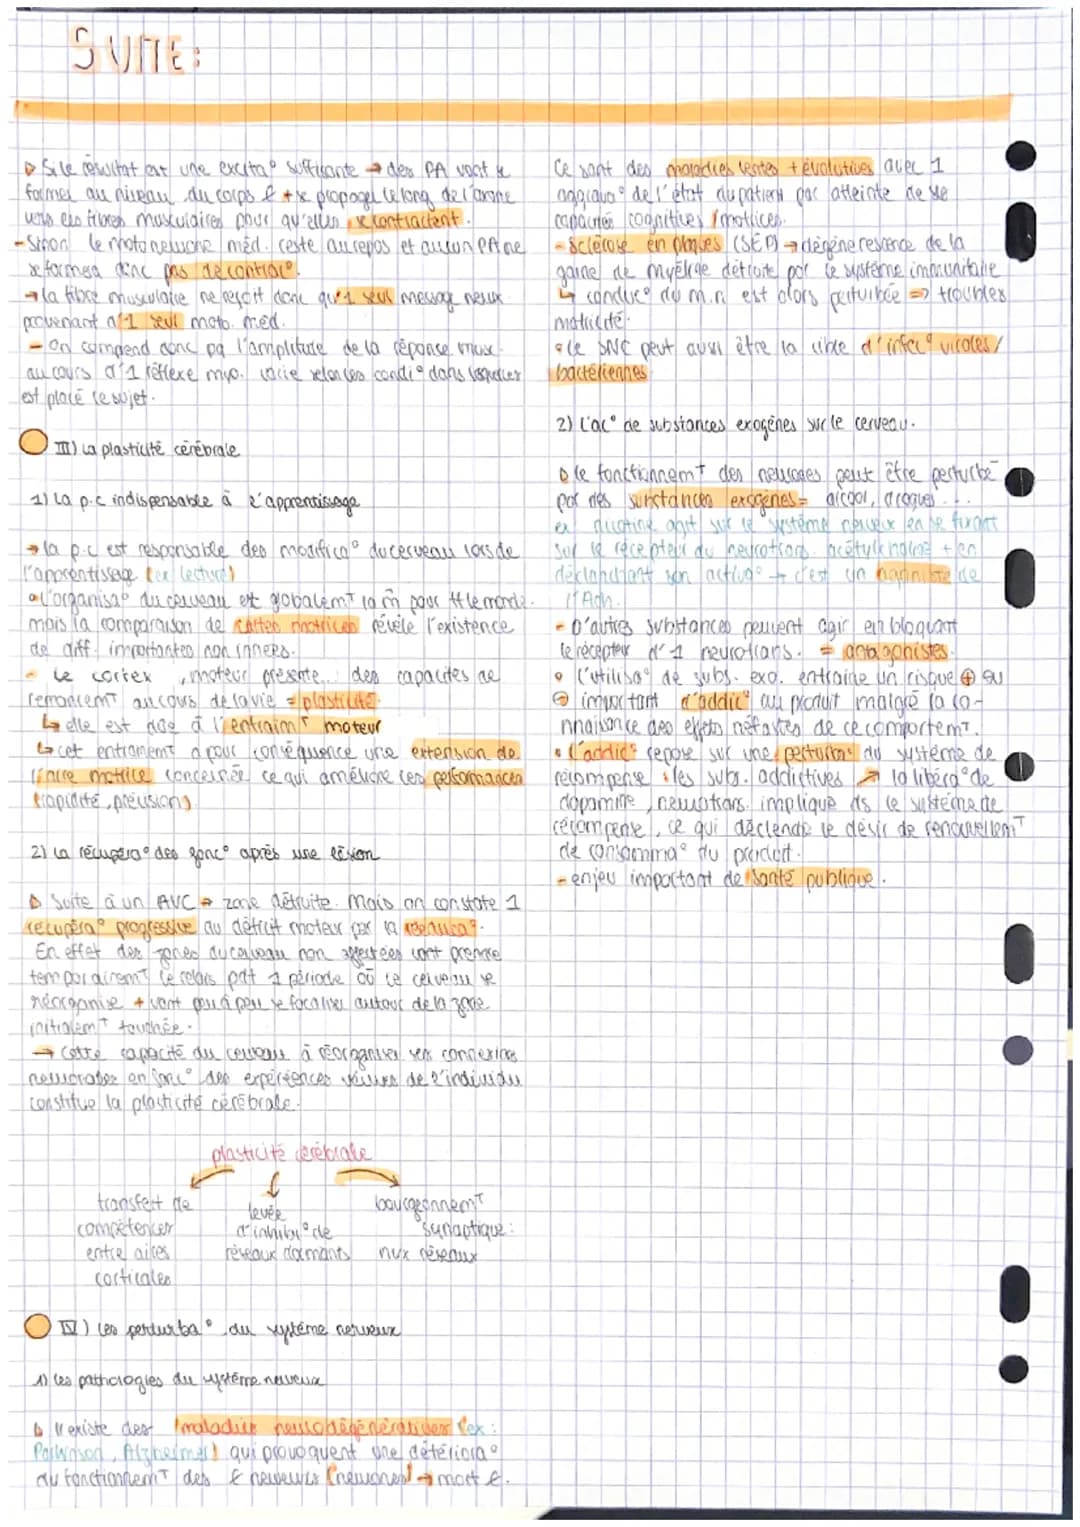 SUITE :
▷ Si le résultat est une excita° suffisante → des PA vont se
former au niveau du corps ¢ + se propager le long de l'axone
vers les fibres musculaires pour qu'elles se contractent.
- Sinon le motoneurone méd. reste au repos et aucun PA ne
se formera donc pas de contrac°.
→ la fibre musculaire ne reçoit donc qu'1 seul message nerveux
provenant d'1 seul moto. méd.
- On comprend donc pq l'amplitude de la réponse musc.
au cours d'1 réflexe myo. varie selon les condi° dans lesquelles
est placé le sujet.
III) La plasticité cérébrale
1) La p.c indispensable à l'apprentissage
→ la p.c est responsable des modifica° du cerveau lors de
l'apprentissage (ex lecture)
• l'organisa° du cerveau est globalemT la m̂ pour tt le monde.
mais la comparaison de cartes motrices révèle l'existence
de diff. importantes non innées.
- Le cortex moteur présente des capacités de
remaniemT au cours de la vie = plasticité
↳ elle est due à l'entrainT moteur
↳ cet entrainemT a pour conséquence une extension de
l'aire motrice concernée ce qui améliore les performances
(rapidité, précision)
2) La récupéra° des fonc° après une lésion
▷ Suite à un AVC → zone détruite. Mais on constate 1
récupéra° progressive du déficit moteur par la rééduca°.
En effet des zones du cerveau non affectées vont prendre
temporairemT le relais pdt 1 période où le cerveau se
réorganise + vont peu à peu se focaliser autour de la zone
initialemT touchée.
→ Cette capacité du cerveau à réorganiser ses connexions
neuronales en fonc° des expériences vécues de l'individu
constitue la plasticité cérébrale.
plasticité cérébrale
transfert de
compétences
entre aires
corticales
levée
d'inhibi° de
réseaux dormants
bourgeonnemT
synaptique :
nvx réseaux
IV) Les perturba° du système nerveux
1) Les pathologies du système nerveux
▷ Il existe des maladies neurodégénératives (ex :
Parkinson, Alzheimer) qui provoquent une détériora°
du fonctionnemT des ¢ nerveuses (neurones) → mort ¢.
Ce sont des maladies lentes + évolutives avec 1
aggrava° de l'état du patient par atteinte de se
capacités cognitives / motrices.
- Sclérose en plaques (SEP) → dégénérescence de la
gaine de myéline détruite par le système immunitaire
↳ conduc° du m.n est alors perturbée => troubles
motricité.
• le SNC peut aussi être la cible d'infec° virales /
bactériennes
2) L'ac° de substances exogènes sur le cerveau.
▷ le fonctionnemT des neurones peut être perturbé
par des substances exogènes = alcool, drogues ...
ex nicotine agit sur le système nerveux en se fixant
sur le récepteur du neurotrans. acétylcholine + en
déclenchant son activa° → c'est un agoniste de
l'Ach.
- D'autres substances peuvent agir en bloquant
le récepteur d'1 neurotrans. = antagonistes.
• l'utilisa° de subs. exo. entraine un risque ⊕ ou
⊖ important d'addic° au produit malgré la co-
nnaissance des effets néfastes de ce comportemT.
• l'addic° repose sur une perturba° du système de
récompense : les subs. addictives ↗ la libéra° de
dopamine, neurotrans. impliqué ds le système de
récompense, ce qui déclenche le désir de renouvellemT
de consomma° du produit.
- enjeu important de santé publique.